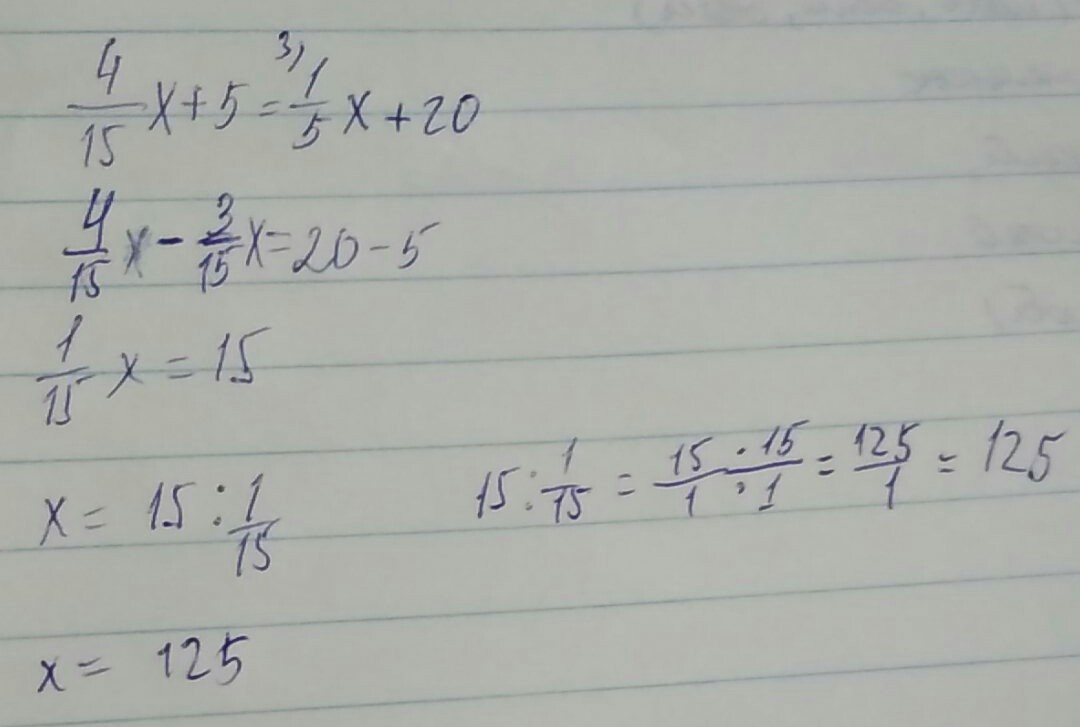 3)
4/15 x + 5 = 1/5 x + 20
4/15 x - 3/15 x = 20 - 5
1/15 x = 15
x = 15 : 1/15
15 : 1/15 = 15 · 15 / 1 · 1 = 125/1 = 125
x = 125